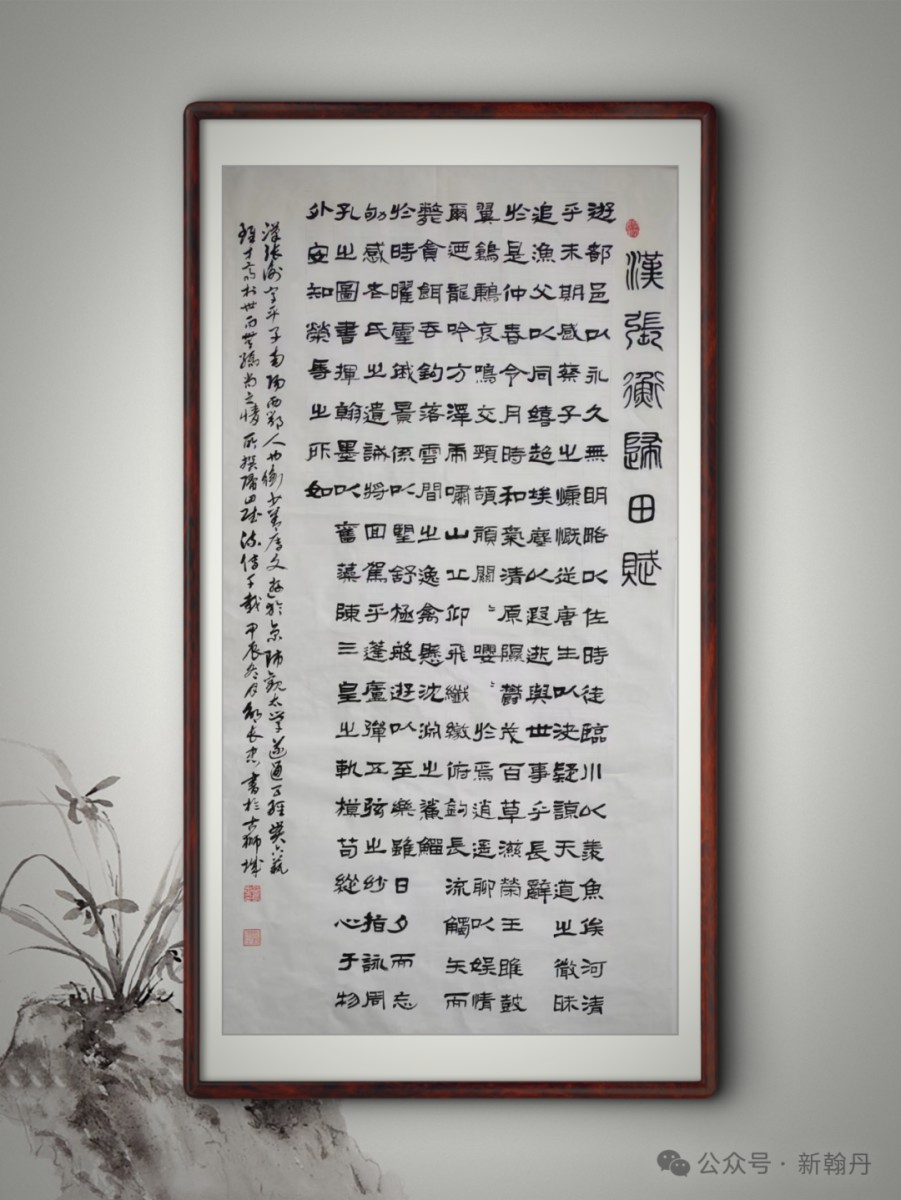 漢張衡歸田賦
遊都邑以永久無明略以佐時徒臨川以羨魚俟河清
乎未期感蔡子之慷慨從唐生以決疑諒天道之微昧
追漁父以同嬉超埃塵以遐逝與世事乎長辭
於是仲春令月時和氣清原隰鬱茂百草滋榮王雎鼓
翼鶬鶊哀鳴交頸頡頏關〻嚶〻於焉逍遙聊以娛情
爾迺龍吟方澤虎嘯山丘仰飛纖繳俯釣長流觸矢而
斃貪餌吞鈎落雲間之逸禽懸沈淵之鯊鰡
於時曜靈俄景係以望舒極般遊以至樂雖日夕而忘
劬感老氏之遺誡將回駕乎蓬廬彈五弦之妙指詠周
孔之圖書揮翰墨以奮藻陳三皇之軌模苟縱心于物
外安知榮辱之所如
漢張衡字平子南陽西鄂人也衡少善屬文游於京師觀太學遂通五經貫六藝
雖才高於世而無驕尚之情所撰歸田賦流傳千載甲辰冬月長忠書於古獅城
公众号·新翰丹